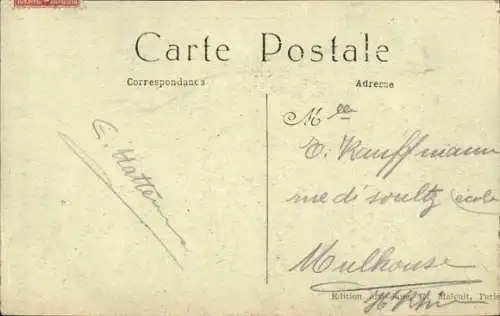 Carte Postale
Correspondance
Adresse
Mlle
E. Kauffmann
rue de Soultz (école
Mulhouse
Ht Rhin
Edition
Paris